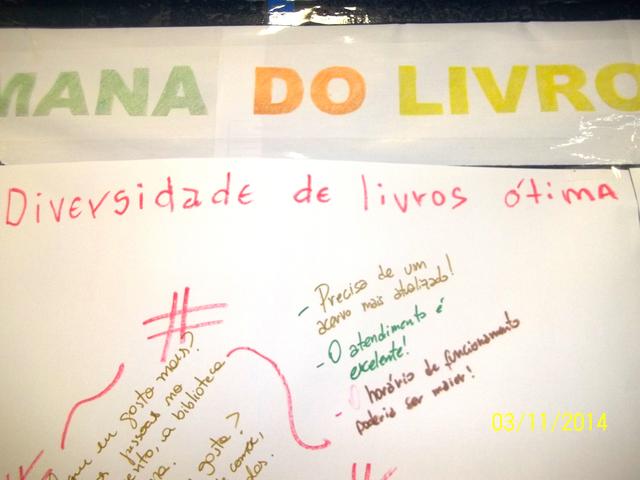 MANA DO LIVRO
Diversidade de livros ótima
#
- Precisa de um
acervo mais atualizado!
- O atendimento é
excelente!
- O horário de funcionamento
poderia ser maior!
que eu gosto mais?
pessoas no
a biblioteca
gosta?
03/11/2014